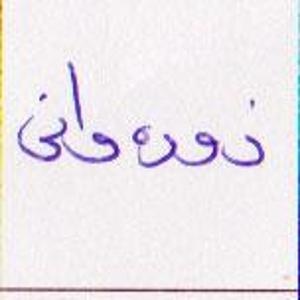 زوره وانی